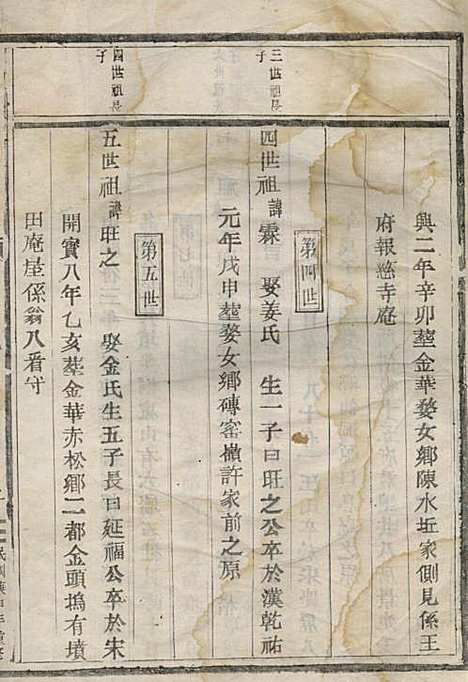 三世祖蔭子
興二年辛卯塟金華婺女鄉陳水坵家側見係王
府報慈寺庵
第四世
四世祖諱霖 娶姜氏 生一子曰旺之公卒於漢乾祐
元年戊申塟婺女鄉磚窑嶺許家前之原
四世祖
子
第五世
五世祖諱旺之 娶金氏生五子長曰延福公卒於宋
開寳八年乙亥塟金華赤松鄉二都金頭塢有墳
田庵屋係翁八看守
民國